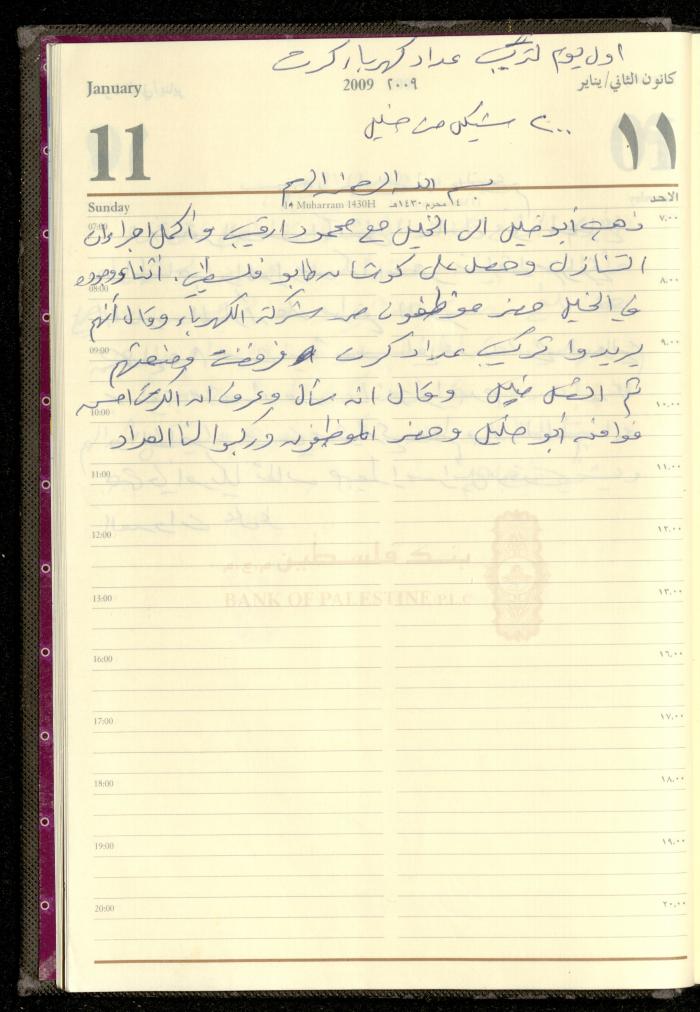 اول يوم لتركيب عداد كهرباء كرت
January
2009 ٢٠٠٩
كانون الثاني/يناير
11
٢٠٠ شيكل من خليل
١١
بسم الله الرحمن الرحيم
Sunday
Muharram 1430H
١٤ محرم ١٤٣٠هـ
الاحد
07:00 ٧،٠٠
ذهب أبو خليل الى الخليل مع محمود ارقيب وأكمل اجراءات
التنازل وحصل على كوشان طابو فلسطيني. أثناء وجوده
08:00 ٨،٠٠
في الخليل حضر موظفون من شركة الكهرباء وقال أنهم
09:00 ٩،٠٠
يريدوا تركيب عداد كرت فرفضت ومنعتهم
ثم اتصل خليل وقال انه سأل وعرف ان الكرت احسن
10:00 ١٠،٠٠
فوافق أبو خليل وحضر الموظفون وركبوا لنا العداد
11:00 ١١،٠٠
12:00 ١٢،٠٠
بنك فلسطين
13:00 ١٣،٠٠
BANK OF PALESTINE PLC
16:00 ١٦،٠٠
17:00 ١٧،٠٠
18:00 ١٨،٠٠
19:00 ١٩،٠٠
20:00 ٢٠،٠٠